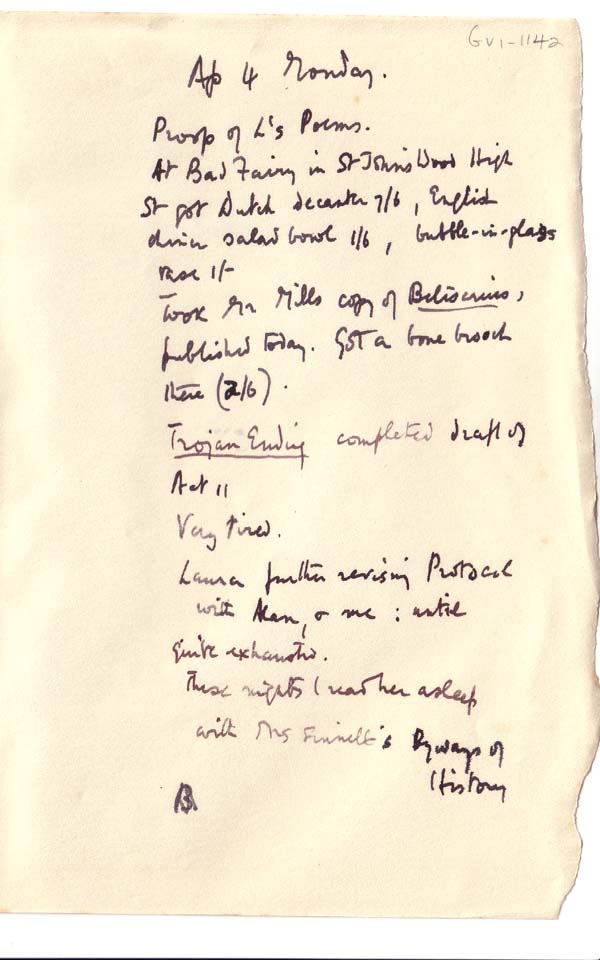 GV1-1142
Ap 4 Monday.
Proofs of L's Poems.
At Bad Fairy in St John's Wood High
St got Dutch decanter 7/6, English
dinner salad bowl 1/6, bubble-in-glass
vase 1/-
Took Mr Mills copy of Belisarius,
published today. Got a bone brooch
there (2/6).
Trojan Ending completed draft of
Act 11
Very tired.
Laura further revising Protocol
with Alan, & me: until
quite exhausted.
These nights I read her asleep
with Mrs Sinnett's Byways of
History
B